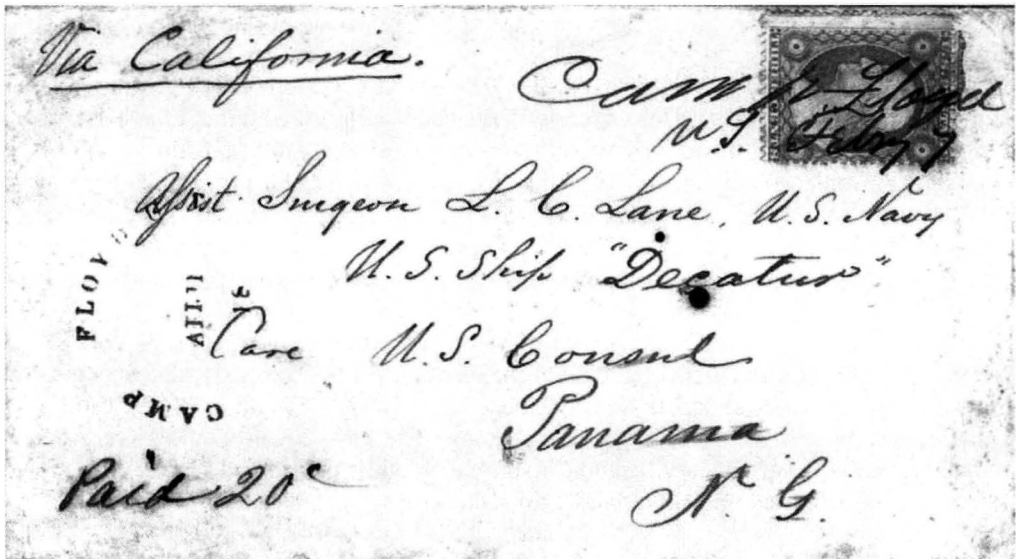 Via California.
Camp Floyd
U.S. Feby 7
Assist Surgeon L. C. Lane, U.S. Navy
U.S. Ship "Decatur"
Care U.S. Consul
Panama
N. G.
Paid 20c
CAMP FLOY